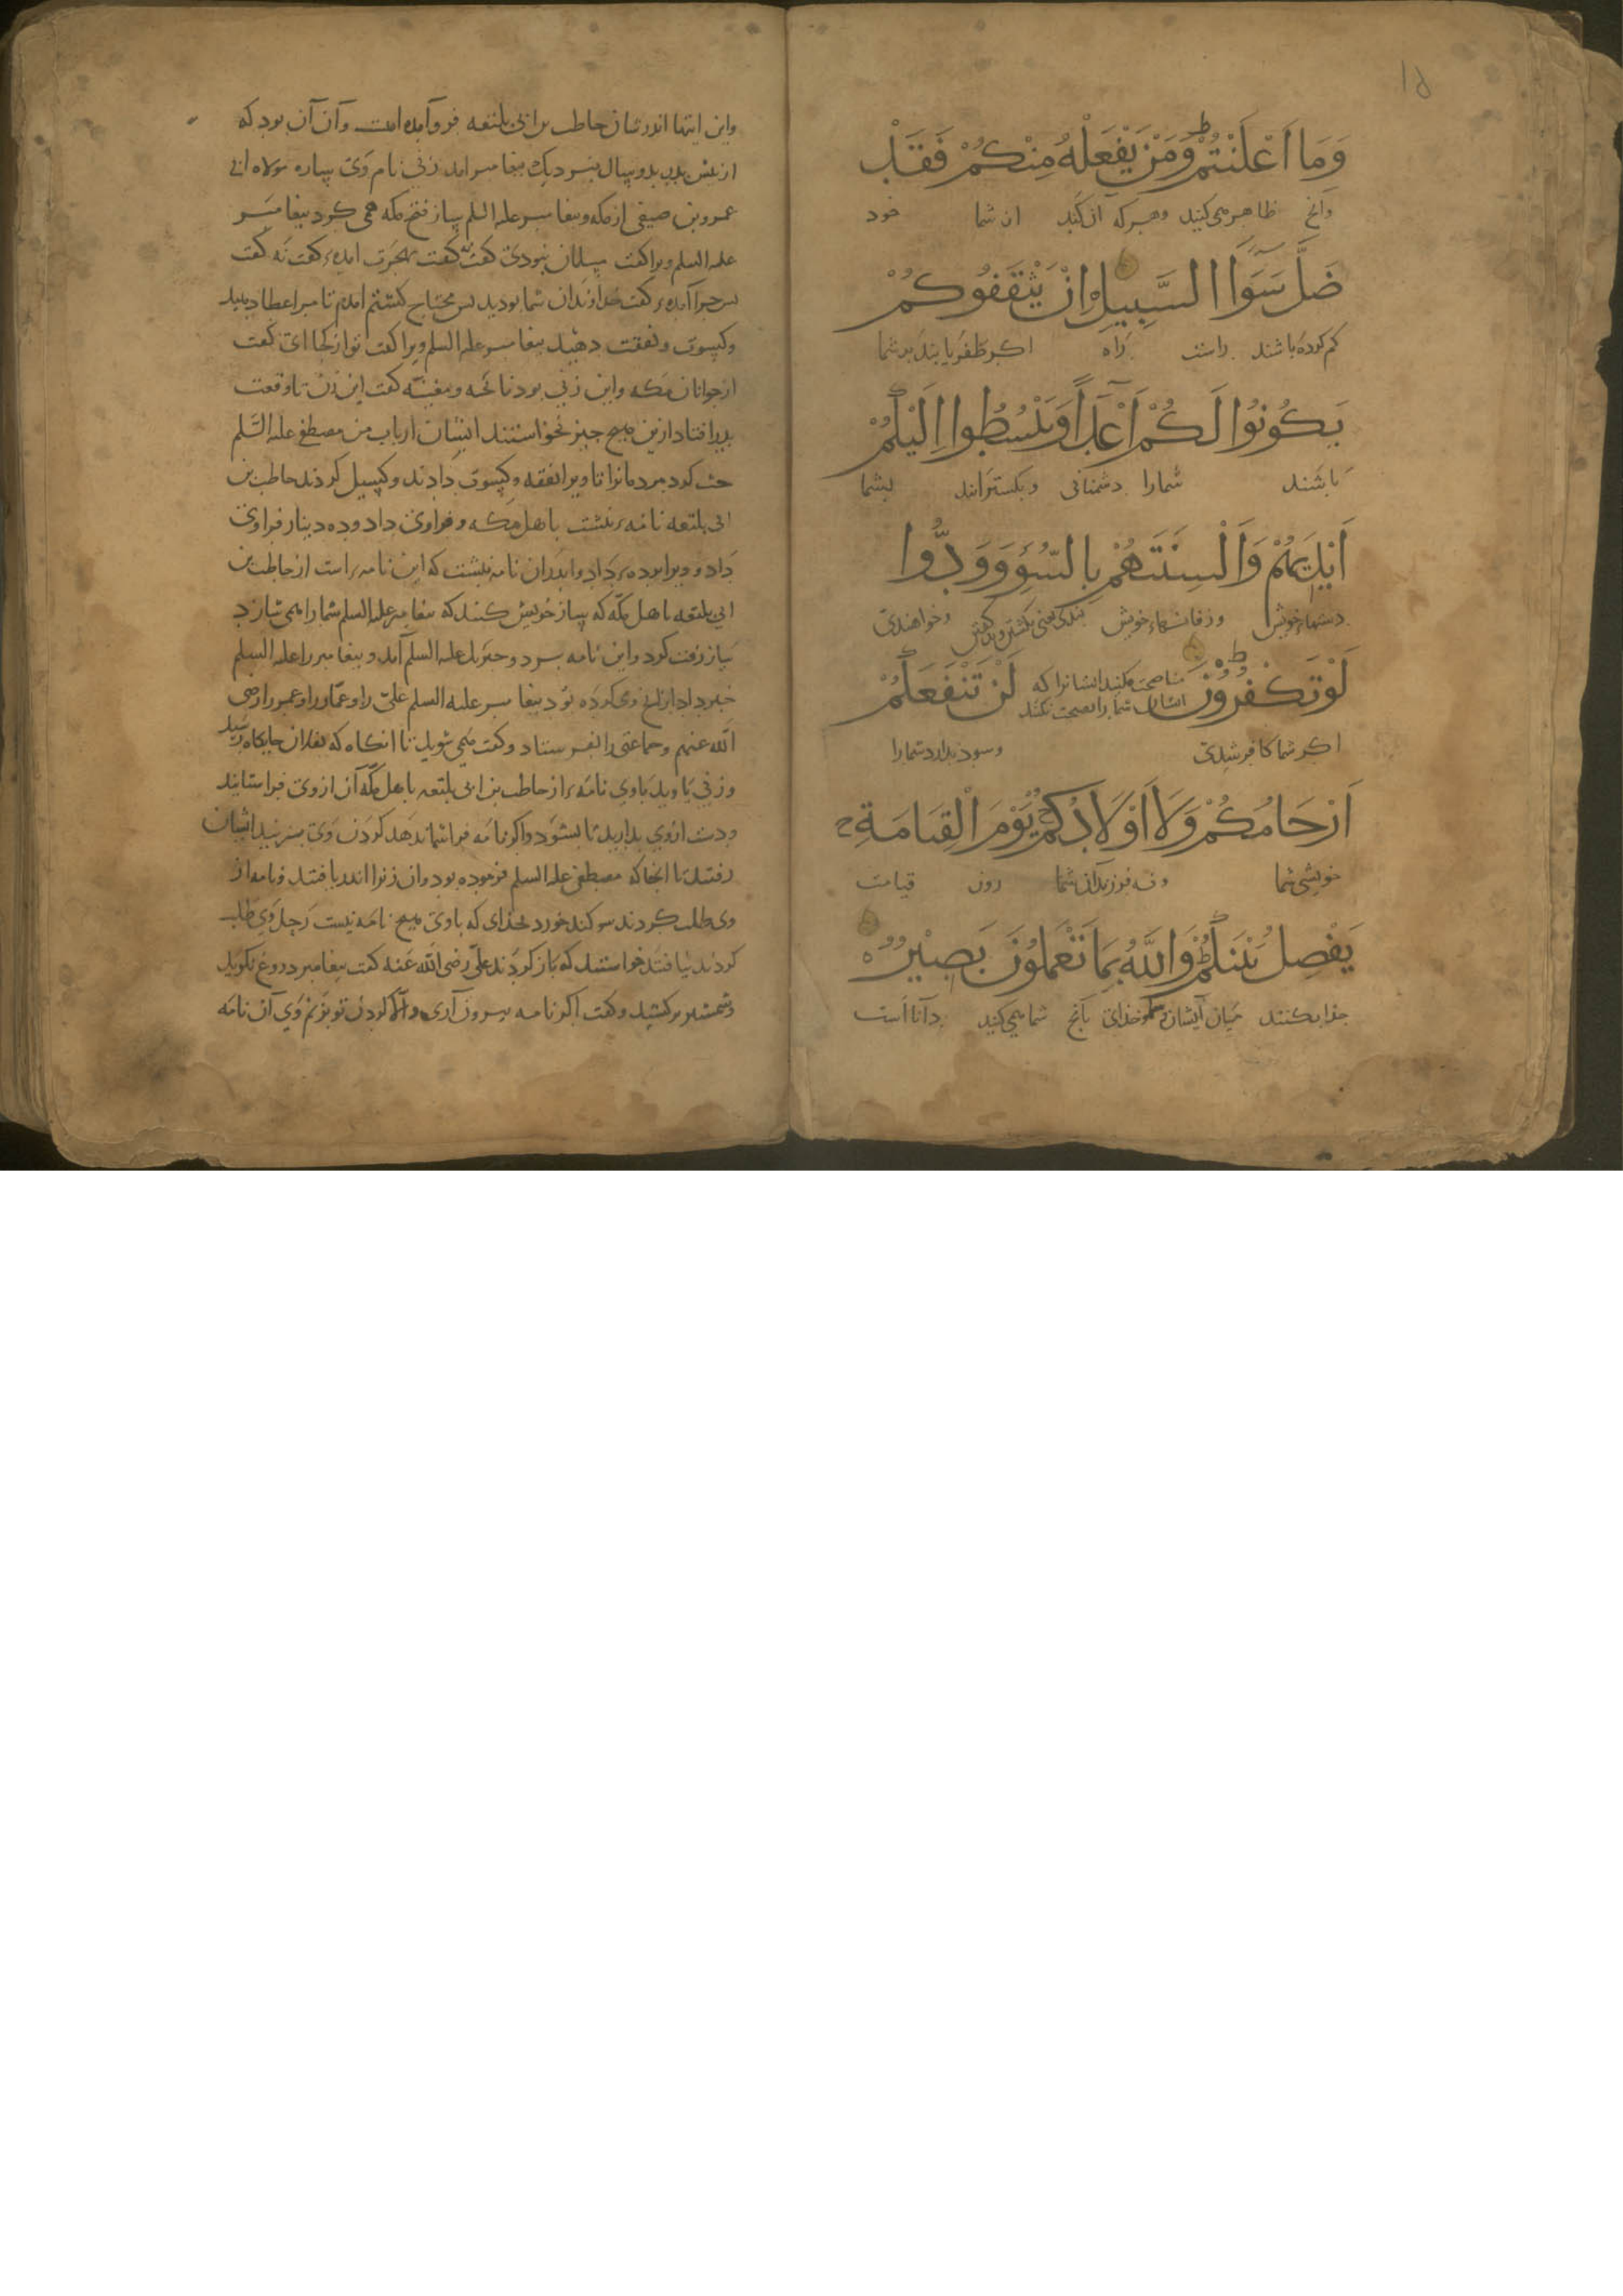 ۱۵
وَمَا اَعْلَنْتُمْ ط وَمَنْ يَفْعَلْهُ مِنْكُمْ فَقَدْ
وانچ ظاهر می کنید وهر که آن کند از شما خود
ضَلَّ سَوَآا السَّبِيلِ اِنْ يَثْقَفُوكُمْ
کم کرده باشند راست راه اکر ظفر یابند بر شما
يَكُونُوا لَكُمْ اَعْدَآءً وَيَبْسُطُوا اِلَيْكُمْ
باشند شمارا دشمنانی و بکسترانند بشما
اَيْدِيَهُمْ وَاَلْسِنَتَهُمْ بِالسُّوءِ وَوَدُّوا
دستهاء خویش وزفانهاء خویش ببدی یعنی بکشتن وبد کفتن وخواهندی
لَوْ تَكْفُرُونَ ط مناصحت مکنید ایشانرا که ایشان شما را نصیحت نکنند لَنْ تَنْفَعَكُمْ
اکر شما کافر شدی وسود ندارد شمارا
اَرْحَامُكُمْ وَلَا اَوْلَادُكُمْ يَوْمَ الْقِيَامَةِ ج
خویشی شما و نه فرزندان شما روز قیامت
يَفْصِلُ بَيْنَكُمْ ط وَاللّٰهُ بِمَا تَعْمَلُونَ بَصِيْرٌ ه
جذا بکنند میان ایشان و خدای بآنچ شما می کنید دانا است
واین ایتها اندر شان حاطب بن ابی بلتعه فرو آمده است وآن آن بود که
از پس بدر بدو سال بنزدیک بیغامبر امد زنی نام وی ساره مولاه ابی
عمرو بن صیفی از مکه وبیغامبر علیه السلم ساز فتح مکه همی کرد بیغامبر
علیه السلم ویرا کفت مسلمان بودی کفت نه کفت بهجرت امدهٔ کفت نه کفت
بس جرا آمدهٔ کفت خداوندان شما بودید بس محتاج کشتم امدم تا مرا عطا دهید
وکسوت ونفقت دهید بیغامبر علیه السلم ویرا کفت تو از کجا ای کفت
از جوانان مکه واین زنی بود نائحه ومغنیه کفت این زن تا وقعت
بدر افتاد از من هیچ جیز نخواستند ایشان ارباب من مصطفی علیه السلم
حث کرد مردمانرا تا ویرا نفقه وکسوت دادند وکسیل کردند حاطب بن
ابی بلتعه نامهٔ نبشت باهل مکه و فراوی داد وده دینار فراوی
داد و ویرا برده داد واندران نامه نبشت که این نامهٔ است از حاطب بن
ابی بلتعه باهل مکه که ساز خویش کنند که بیغامبر علیه السلم شما را همی سازد
ساز رفت کرد واین نامه ببرد وجبریل علیه السلم آمد و بیغامبر را علیه السلم
خبر داد ازانچ وی کرده بود بیغامبر علیه السلم علی را وعمار را وعمر را رضی
الله عنهم وجماعتی را بفرستاد وکفت همی شوید تا انکاه که بفلان جایکاه رسید
وزنی یاوید باوی نامهٔ از حاطب بن ابی بلتعه باهل مکه آن از وی فراستانید
ودست ازوی بدارید تا بشود واکر نامه فراشما ندهد کردن وی بزنید ایشان
رفتند تا انجا که مصطفی علیه السلم فرموده بود وان زنرا اندریافتند ونامه از
وی طلب کردند سوکند خورد بخدای که باوی هیچ نامه نیست رحل وی طلب
کردند نیافتند خواستند که باز کردند علی رضی الله عنه کفت بیغامبر دروغ نکوید
وشمشیر برکشید وکفت اکر نامه بیرون آری واکر نه کردن تو بزنم وی آن نامه